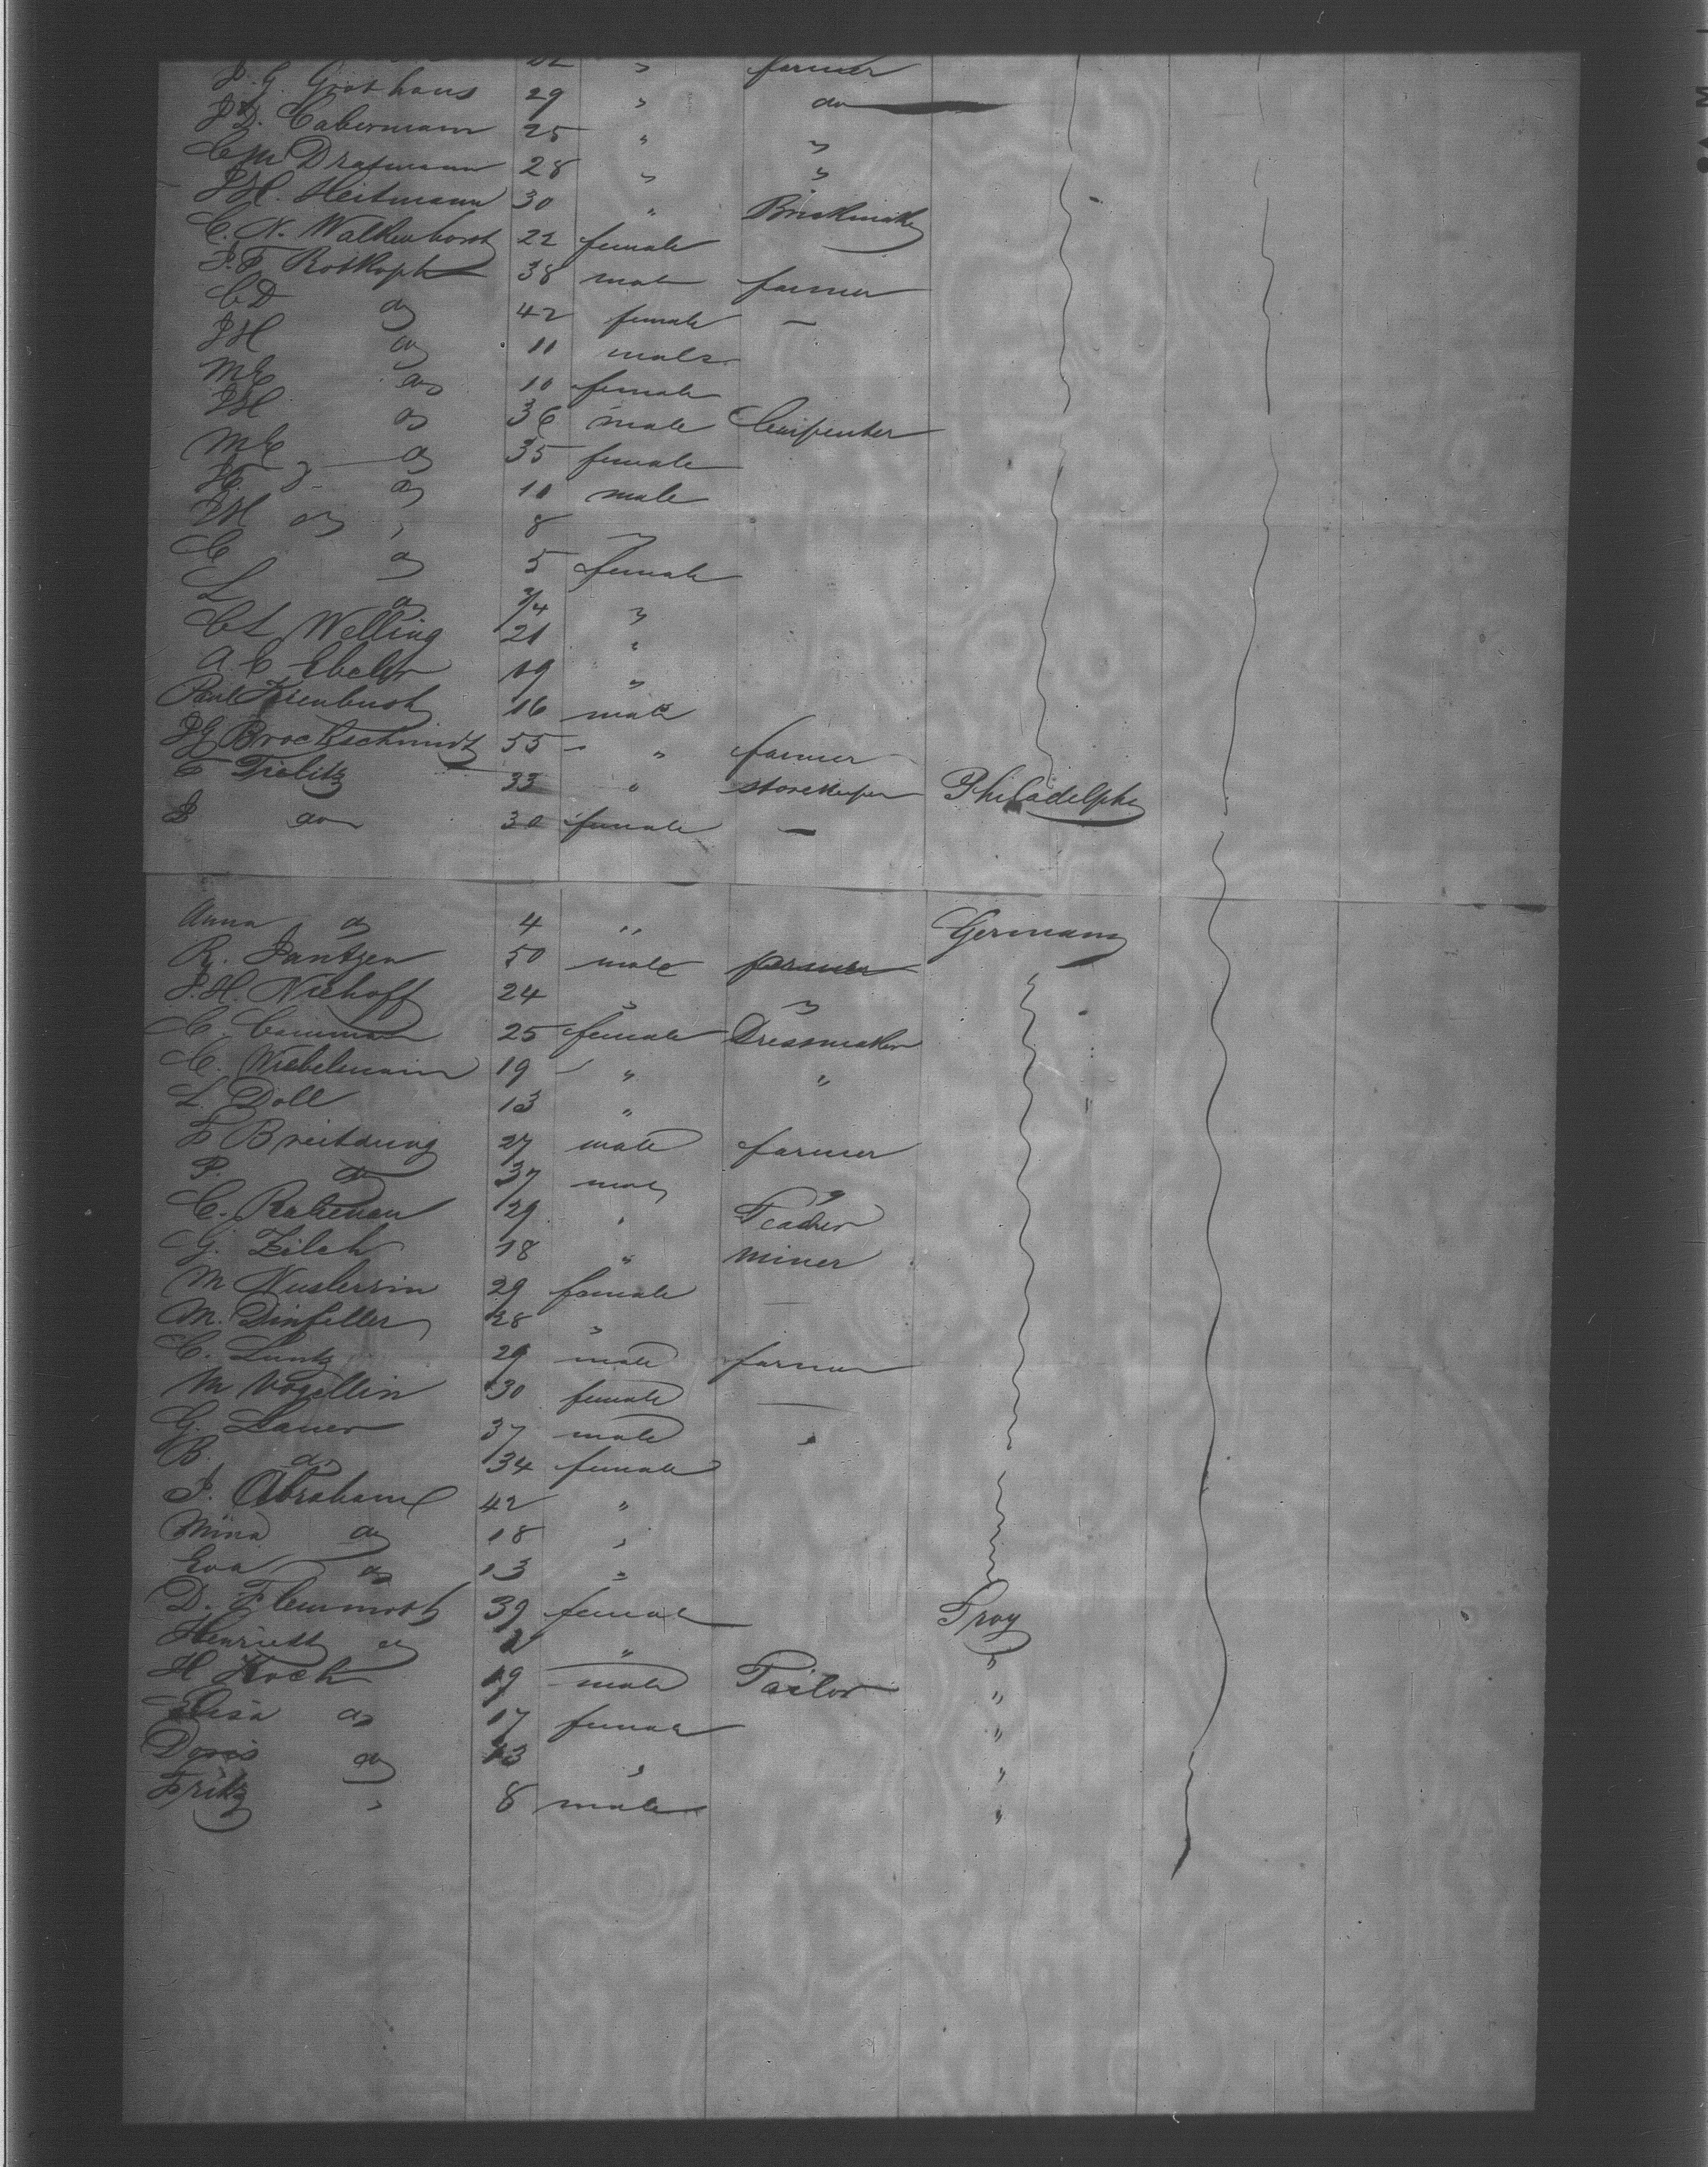 farmer
J. G. Grothaus 29 " do
25 " "
28 " "
J H. Heitmann 30 " Brickmaker
C. N. Walkenhorst 22 female
J. F. Rotkoph 38 male farmer
C D do 42 female —
J H do 11 male
M E do 10 female
J H do 36 male Carpenter
M E do 35 female
H. do 10 male
J H do " 8 "
C do 5 female
L do 3/4 "
C L Welling 21 "
A. C. Ebeler 19 "
Paul 16 male
J G Brockschmidt 55 " farmer
Tielitz 33 " storekeeper Philadelphi
J do 30 female —
Anna do 4 " Germany
R. Jantzen 50 male farmer
J. H. Niehoff 24 " "
C. 25 female Dressmaker
C. Wiebelmann 19 " "
L. Doll 13 "
F Breitdung 27 male farmer
P. do 37 male "
C. 29 " Teacher
G. Zilch 18 " miner
M Nuslersin 29 female —
M. Dinfeller 28 "
C. Luntz 29 male farmer
M Vogellin 30 female —
G. Lauer 37 male "
B. do 34 female
J. Abraham 42 "
Mina do 18 "
Eva do 13 "
D. Flemmoth 39 female Troy
Henriett do 2 " "
H Koch 19 male Tailor "
Elisa do 17 female "
Doris do 13 " "
Fritz " 8 male "